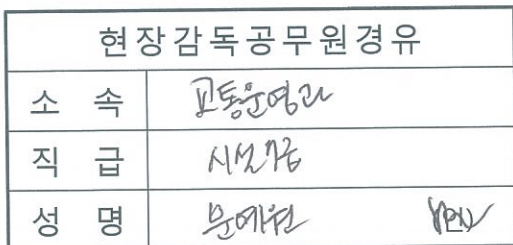 현장감독공무원경유
소 속 교통운영과
직 급 시설7급
성 명 문예원 (인)